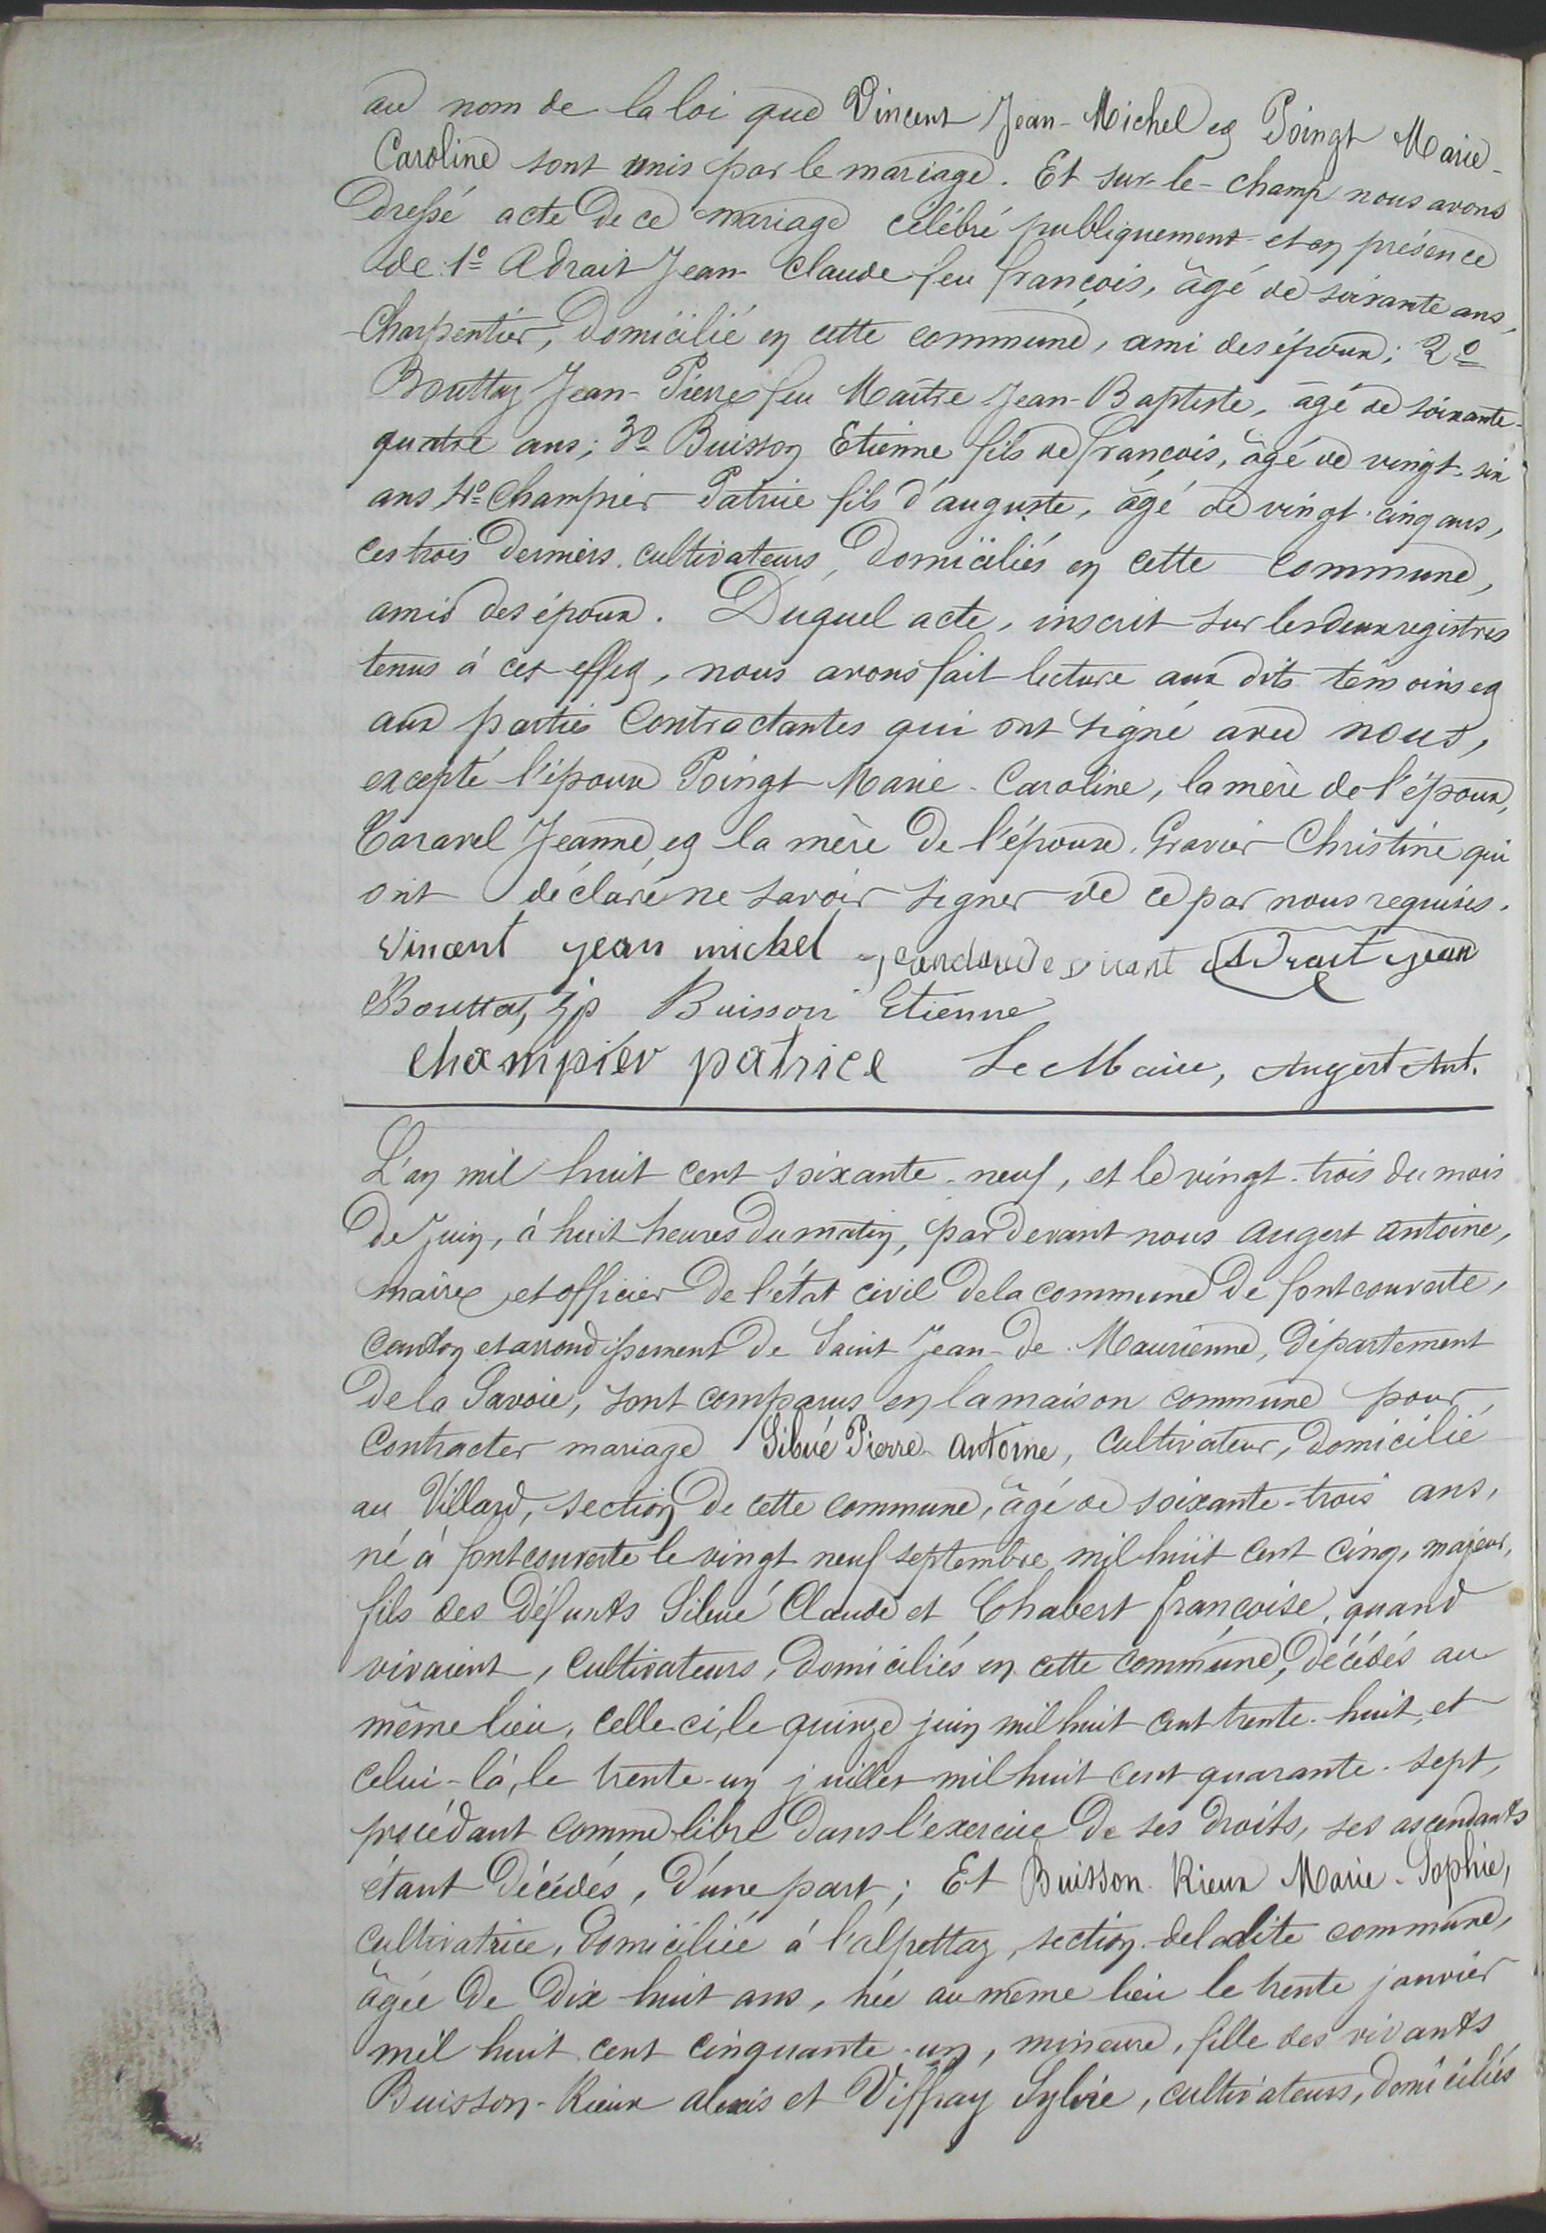 au nom de la loi que Vincent Jean-Michel et Poingt Marie-
Caroline sont unis par le mariage. Et sur-le-champ nous avons
dressé acte de ce mariage célébré publiquement et en présence
de 1º Adrait Jean-Claude feu françois, âgé de soixante ans,
Charpentier, domicilié en cette commune, ami des époux; 2º
Bouttaz Jean-Pierre feu Maître Jean-Baptiste, âgé de soixante-
quatre ans; 3º Buisson Etienne fils de françois, âgé de vingt-six
ans 4º Champier Patrice fils d'auguste, âgé de vingt-cinq ans,
ces trois derniers cultivateurs, domiciliés en cette commune,
amis des époux. Duquel acte, inscrit sur les deux registres
tenus à cet effet, nous avons fait lecture aux dits témoins et
aux parties contractantes qui ont signé avec nous,
excepté l'épouse Poingt Marie-Caroline, la mère de l'époux,
Taravel Jeanne, et la mère de l'épouse, Gravier Christine qui
ont déclaré ne savoir signer de ce par nous requises.
Vincent jean michel jean claude Adrait jean
Bouttaz jp Buisson Etienne
champier patrice Le Maire, Augert Ant.
L'an mil huit cent soixante-neuf, et le vingt-trois du mois
de Juin, à huit heures du matin, par devant nous augert antoine,
maire et officier de l'état civil de la commune de fontcouverte,
canton et arrondissement de Saint Jean-de-Maurienne, Département
de la Savoie, sont comparus en la maison commune pour
contracter mariage Sibué Pierre-antoine, cultivateur, domicilié
au Villard, section de cette commune, âgé de soixante-trois ans,
né à fontcouverte le vingt neuf septembre mil huit cent cinq, majeur,
fils des défunts Sibué Claude et Chabert françoise, quand
vivaient, cultivateurs, domiciliés en cette commune, décédés au
même lieu, celle ci, le quinze juin mil huit cent trente-huit, et
celui-là, le trente-un juillet mil huit cent quarante-sept,
procédant comme libre dans l'exercice de ses droits, ses ascendants
étant décédés, d'une part; Et Buisson-Rieux Marie-Sophie,
cultivatrice, domiciliée à l'alpettaz, section de la dite commune,
âgée de dix-huit ans, née au même lieu le trente janvier
mil huit cent cinquante-un, mineure, fille des vivants
Buisson-Rieux alexis et Viffray Sylvie, cultivateurs, domiciliés